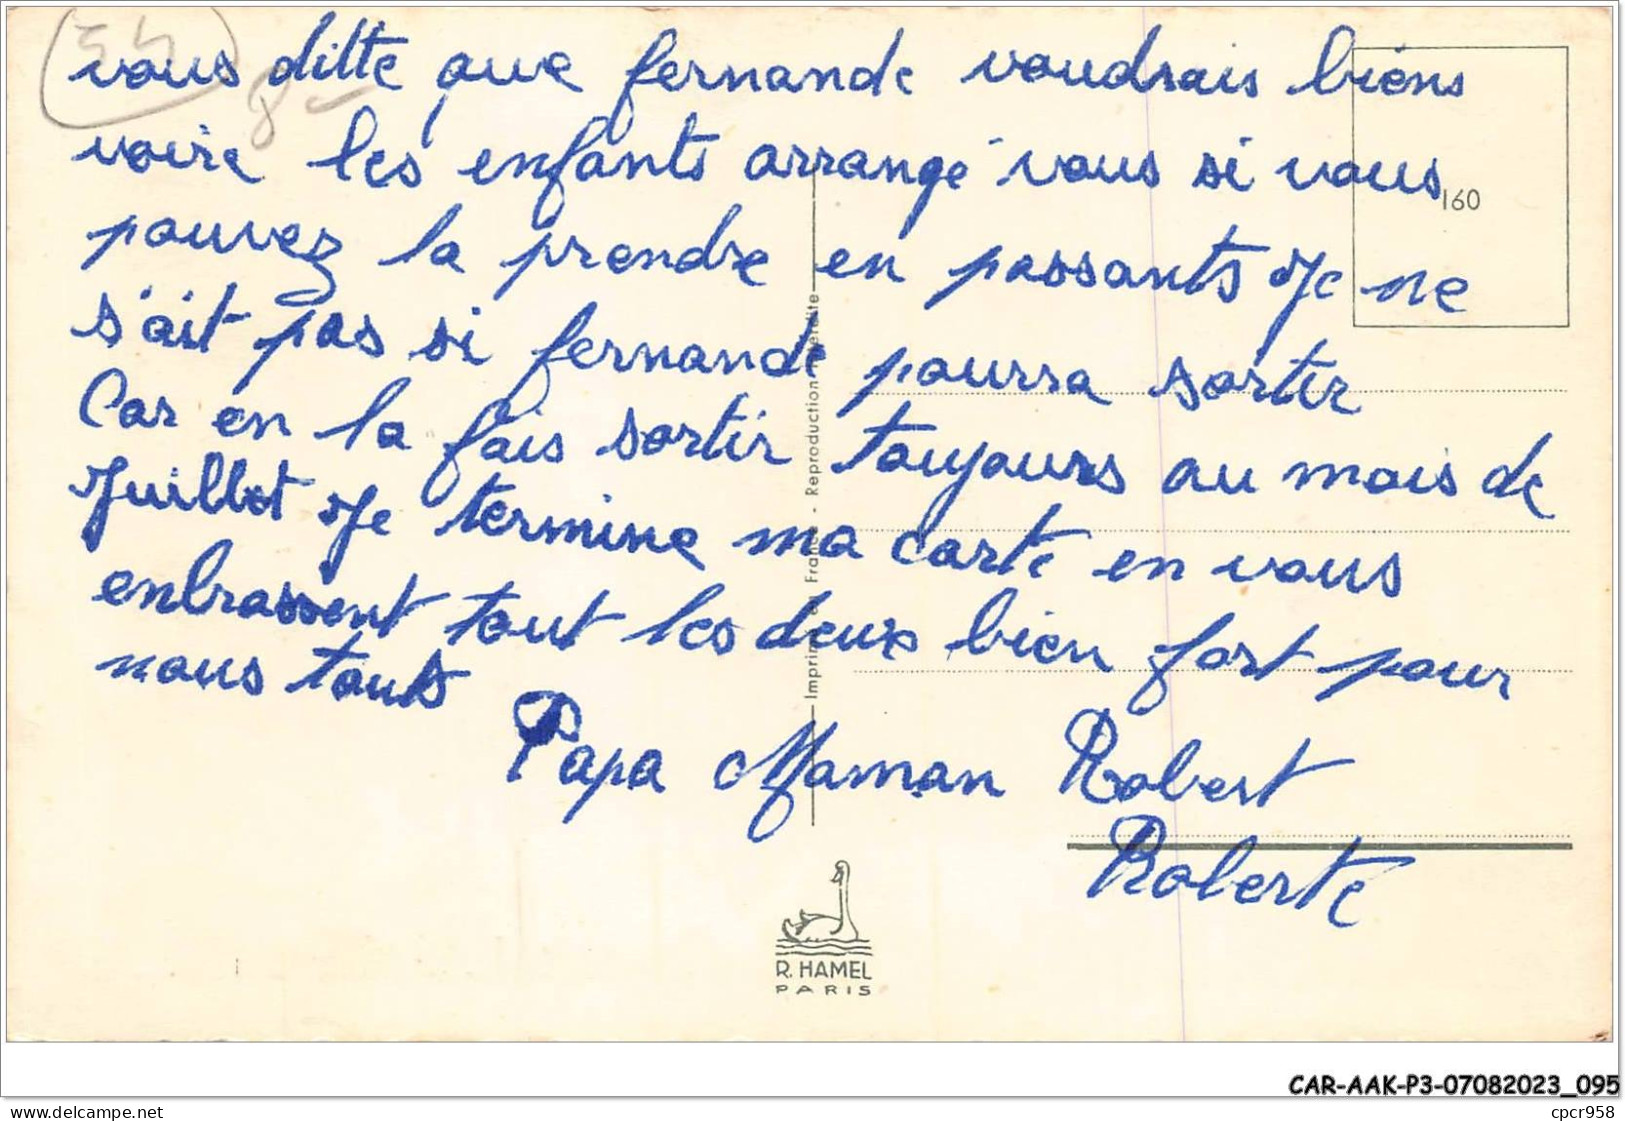 54
8-
vous ditte que fernande voudrais biens
voire les enfants arrangé vous si vous
160
pouvez la prendre en passants Je ne
s'ait pas si fernande pourra sortir
Car en la fais sortir toujours au mois de
Juillet Je termine ma carte en vous
enbrassent tout les deux bien fort pour
nous touts
Papa Maman Robert
Roberte
Imprimé en France - Reproduction interdite
R. HAMEL
PARIS
CAR-AAK-P3-07082023_095
delcampe.net
cpcr958